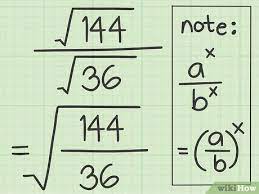 √144
√36
= √144/36
note:
a^x
b^x
= (a/b)^x
wikiHow